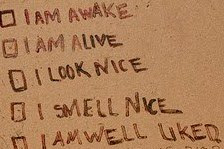 I AM AWAKE
I AM ALIVE
I LOOK NICE
I SMELL NICE
I AM WELL LIKED